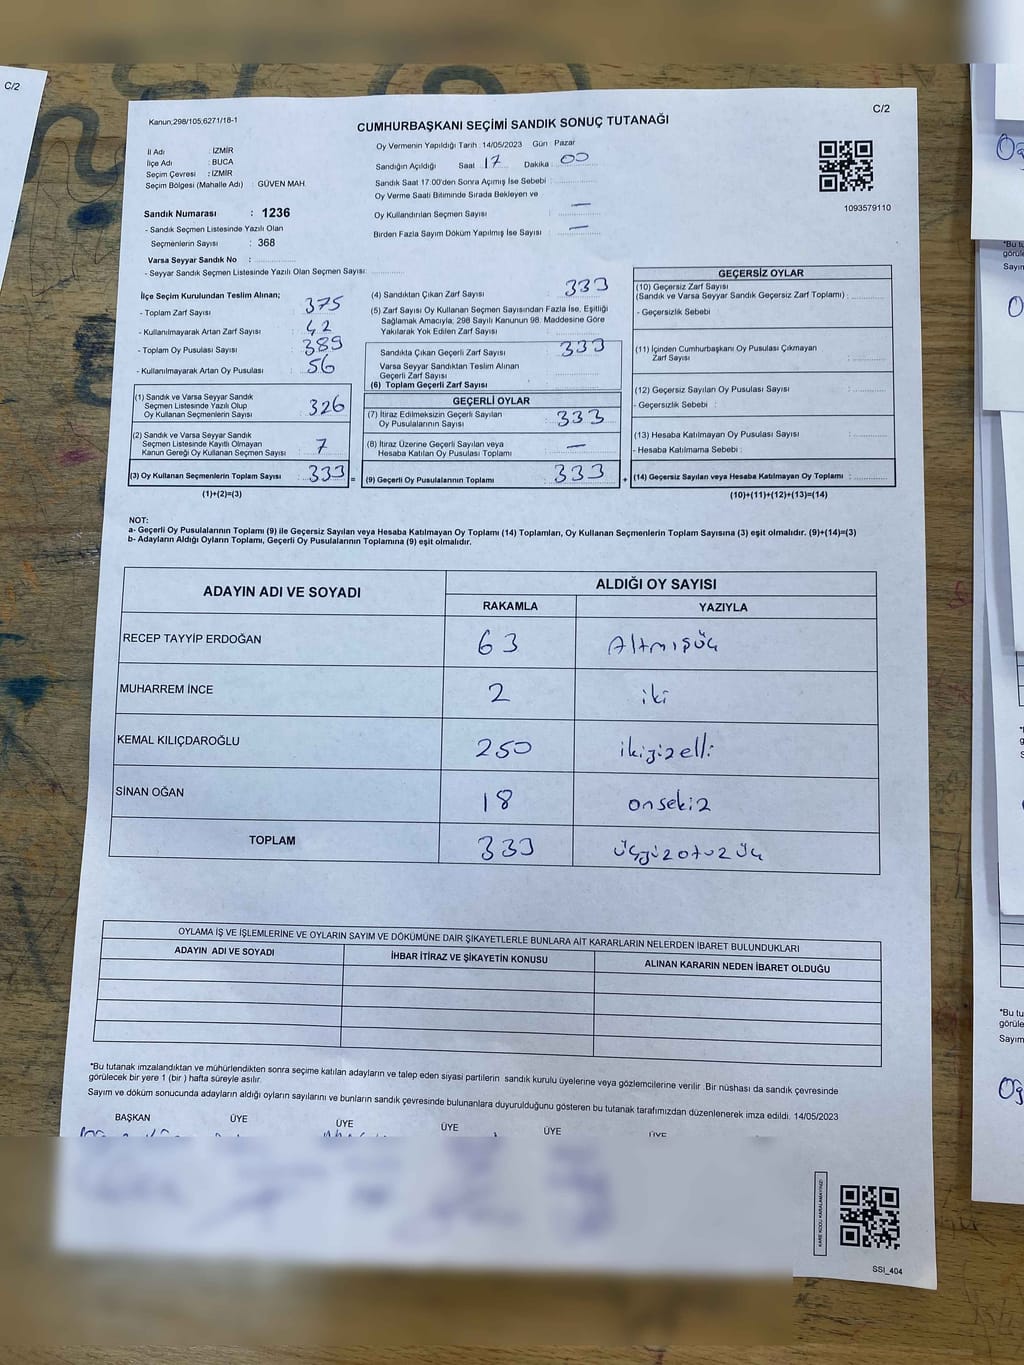 C/2
Kanun;298/105,6271/18-1
C/2
CUMHURBAŞKANI SEÇİMİ SANDIK SONUÇ TUTANAĞI
İl Adı : İZMİR
İlçe Adı : BUCA
Seçim Çevresi : İZMİR
Seçim Bölgesi (Mahalle Adı) : GÜVEN MAH.
Oy Vermenin Yapıldığı Tarih : 14/05/2023 Gün Pazar
Sandığın Açıldığı Saat 17 Dakika 00
Sandık Saat 17:00'den Sonra Açımış İse Sebebi :
Oy Verme Saati Bitiminde Sırada Bekleyen ve
Oy Kullandırılan Seçmen Sayısı : —
Birden Fazla Sayım Döküm Yapılmış İse Sayısı : —
1093579110
Sandık Numarası : 1236
- Sandık Seçmen Listesinde Yazılı Olan
Seçmenlerin Sayısı : 368
Varsa Seyyar Sandık No :
- Seyyar Sandık Seçmen Listesinde Yazılı Olan Seçmen Sayısı:
İlçe Seçim Kurulundan Teslim Alınan;
- Toplam Zarf Sayısı : 375
- Kullanılmayarak Artan Zarf Sayısı : 42
- Toplam Oy Pusulası Sayısı : 389
- Kullanılmayarak Artan Oy Pusulası : 56
(1) Sandık ve Varsa Seyyar Sandık
Seçmen Listesinde Yazılı Olup
Oy Kullanan Seçmenlerin Sayısı : 326
(2) Sandık ve Varsa Seyyar Sandık
Seçmen Listesinde Kayıtlı Olmayan
Kanun Gereği Oy Kullanan Seçmen Sayısı : 7
(3) Oy Kullanan Seçmenlerin Toplam Sayısı : 333
(1)+(2)=(3)
(4) Sandıktan Çıkan Zarf Sayısı : 333
(5) Zarf Sayısı Oy Kullanan Seçmen Sayısından Fazla İse, Eşitliği
Sağlamak Amacıyla, 298 Sayılı Kanunun 98. Maddesine Göre
Yakılarak Yok Edilen Zarf Sayısı :
Sandıkta Çıkan Geçerli Zarf Sayısı : 333
Varsa Seyyar Sandıktan Teslim Alınan
Geçerli Zarf Sayısı :
(6) Toplam Geçerli Zarf Sayısı :
GEÇERLİ OYLAR
(7) İtiraz Edilmeksizin Geçerli Sayılan
Oy Pusulalarının Sayısı : 333
(8) İtiraz Üzerine Geçerli Sayılan veya
Hesaba Katılan Oy Pusulası Toplamı : —
= (9) Geçerli Oy Pusulalarının Toplamı : 333
GEÇERSİZ OYLAR
(10) Geçersiz Zarf Sayısı
(Sandık ve Varsa Seyyar Sandık Geçersiz Zarf Toplamı) :
- Geçersizlik Sebebi :
(11) İçinden Cumhurbaşkanı Oy Pusulası Çıkmayan
Zarf Sayısı :
(12) Geçersiz Sayılan Oy Pusulası Sayısı :
- Geçersizlik Sebebi :
(13) Hesaba Katılmayan Oy Pusulası Sayısı :
- Hesaba Katılmama Sebebi :
+ (14) Geçersiz Sayılan veya Hesaba Katılmayan Oy Toplamı :
(10)+(11)+(12)+(13)=(14)
NOT:
a- Geçerli Oy Pusulalarının Toplamı (9) ile Geçersiz Sayılan veya Hesaba Katılmayan Oy Toplamı (14) Toplamları, Oy Kullanan Seçmenlerin Toplam Sayısına (3) eşit olmalıdır. (9)+(14)=(3)
b- Adayların Aldığı Oyların Toplamı, Geçerli Oy Pusulalarının Toplamına (9) eşit olmalıdır.
ADAYIN ADI VE SOYADI ALDIĞI OY SAYISI
RAKAMLA YAZIYLA
RECEP TAYYİP ERDOĞAN 63 Altmışüç
MUHARREM İNCE 2 iki
KEMAL KILIÇDAROĞLU 250 ikiyüzelli
SİNAN OĞAN 18 onsekiz
TOPLAM 333 üçyüzotuzüç
OYLAMA İŞ VE İŞLEMLERİNE VE OYLARIN SAYIM VE DÖKÜMÜNE DAİR ŞİKAYETLERLE BUNLARA AİT KARARLARIN NELERDEN İBARET BULUNDUKLARI
ADAYIN ADI VE SOYADI İHBAR İTİRAZ VE ŞİKAYETİN KONUSU ALINAN KARARIN NEDEN İBARET OLDUĞU
*Bu tutanak imzalandıktan ve mühürlendikten sonra seçime katılan adayların ve talep eden siyasi partilerin sandık kurulu üyelerine veya gözlemcilerine verilir .Bir nüshası da sandık çevresinde
görülecek bir yere 1 (bir ) hafta süreyle asılır.
Sayım ve döküm sonucunda adayların aldığı oyların sayılarını ve bunların sandık çevresinde bulunanlara duyurulduğunu gösteren bu tutanak tarafımızdan düzenlenerek imza edildi. 14/05/2023
BAŞKAN ÜYE ÜYE ÜYE ÜYE ÜYE
KARE KODU KARALAMAYINIZ!
SSI_404
*Bu tu
görüle
Sayım